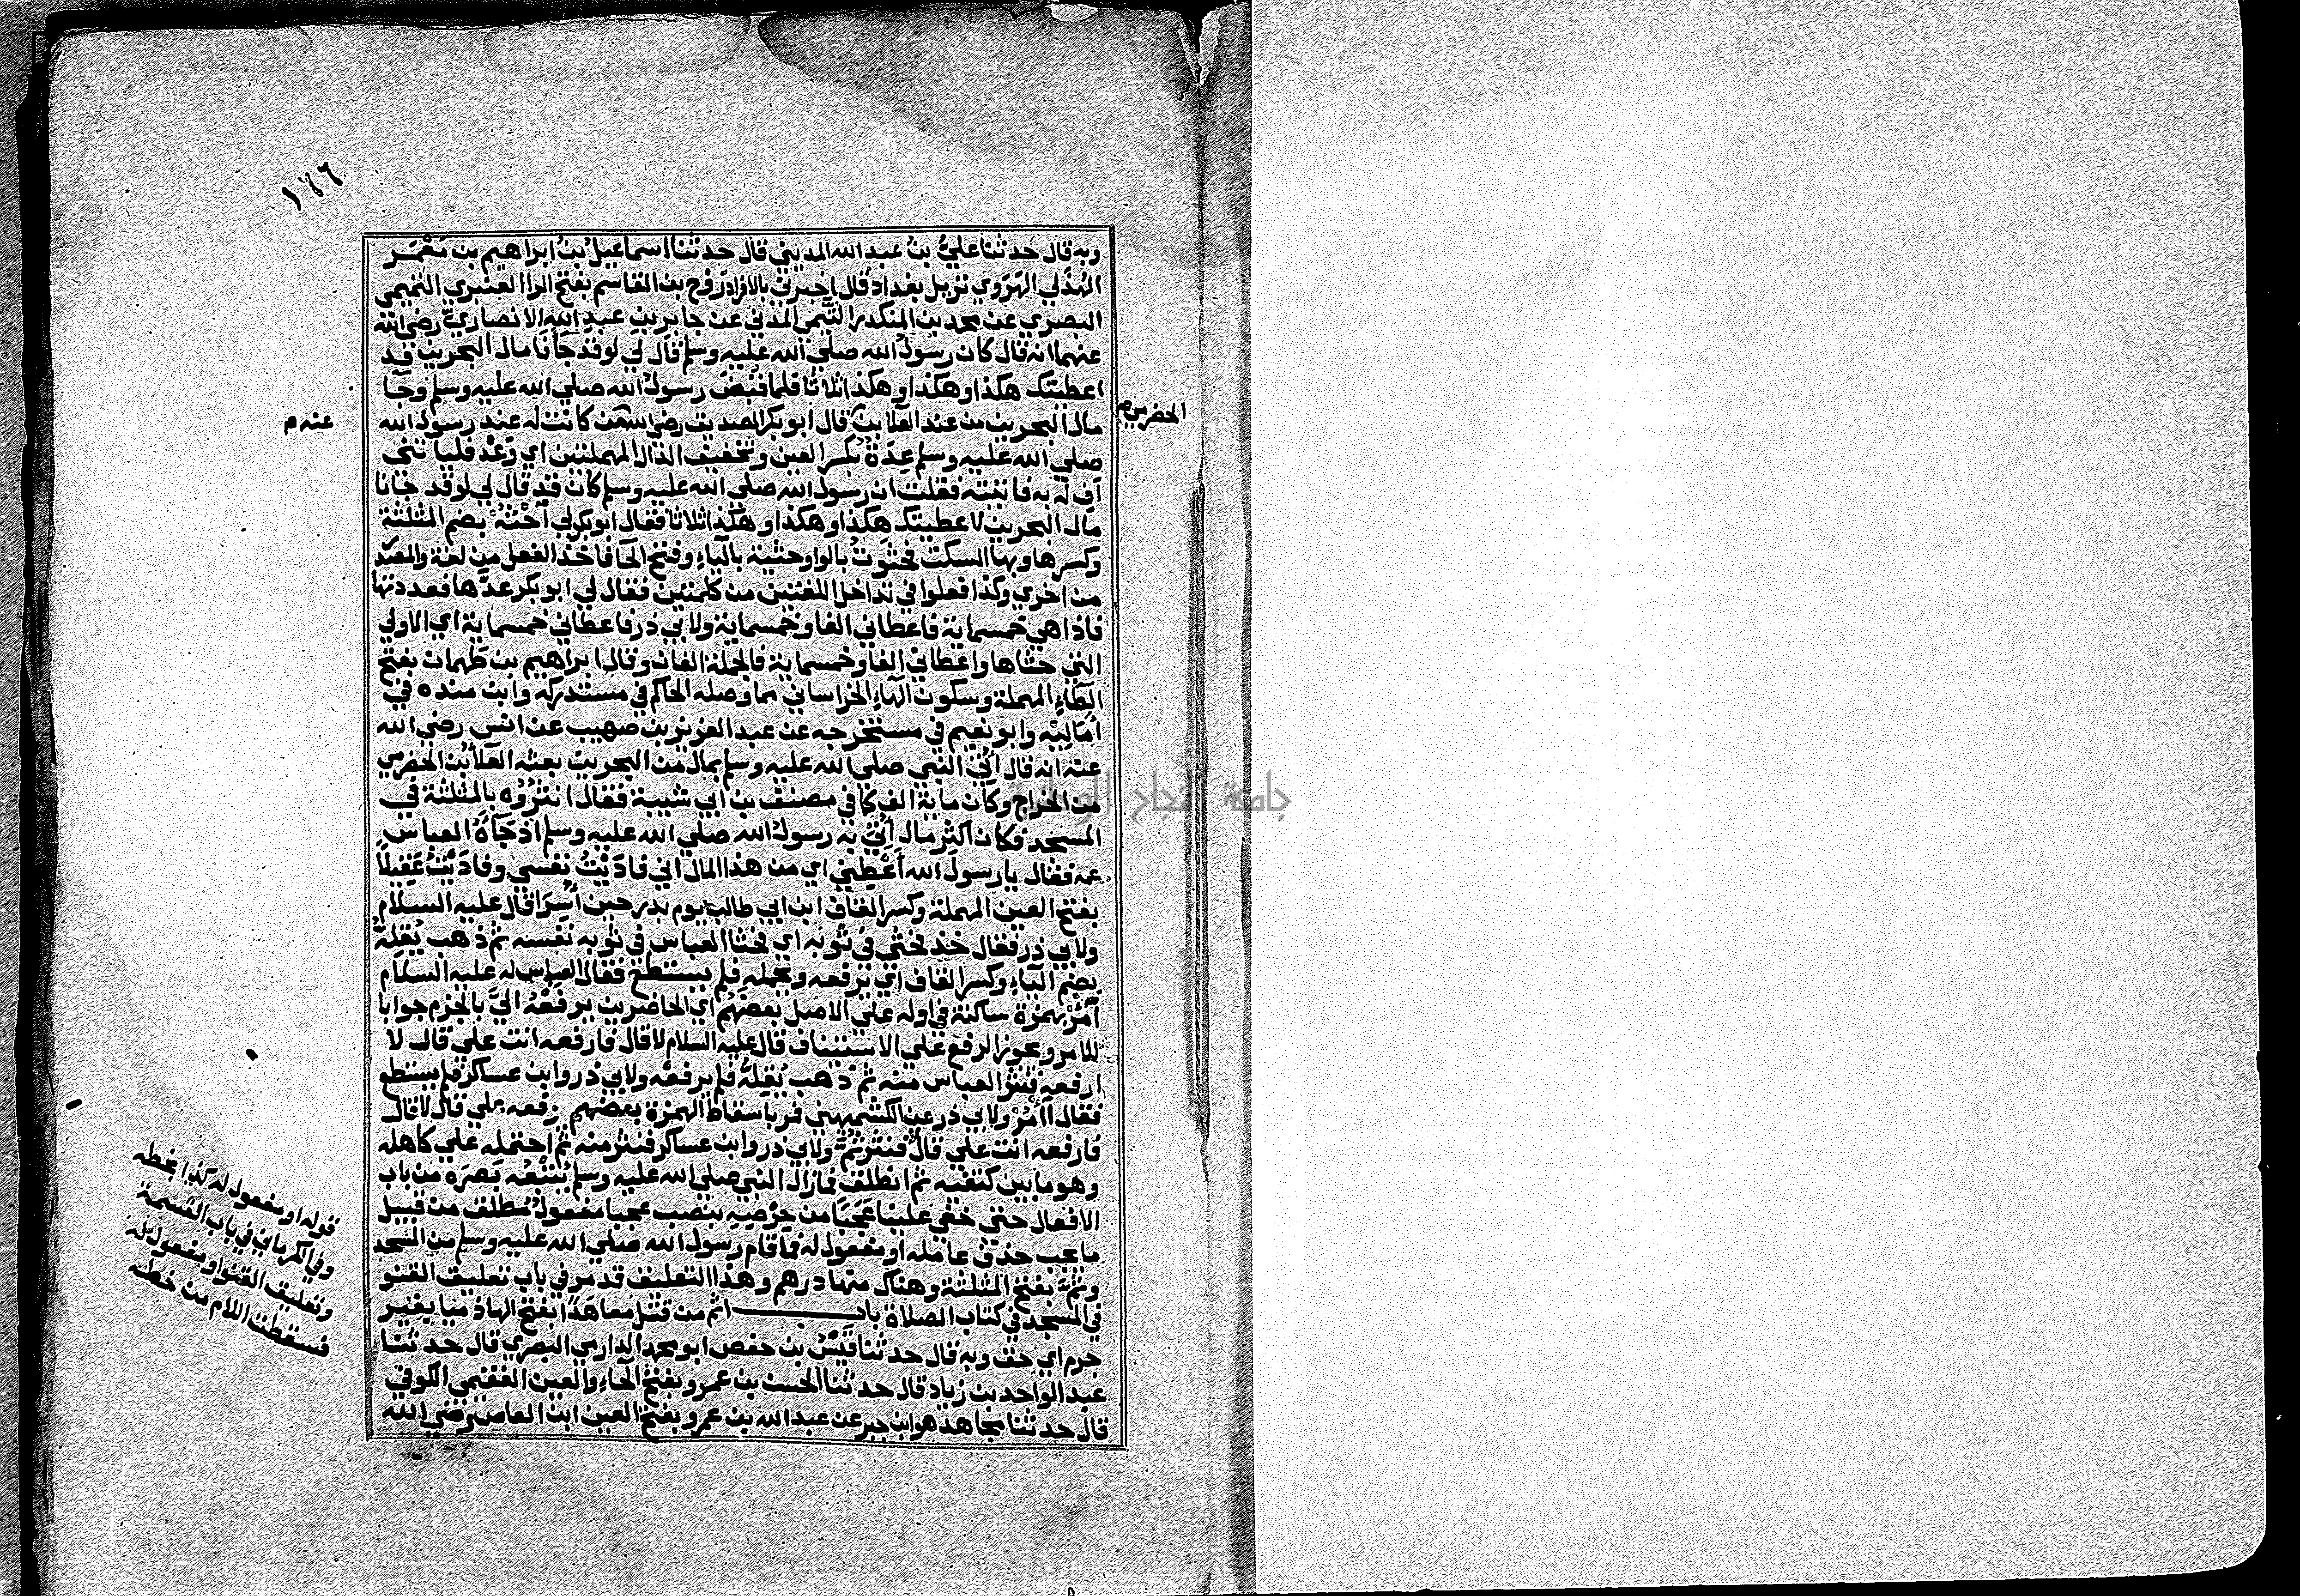 ١٦٦
وبه قال حدثنا عليُّ بنُ عبد الله المديني قال حدثنا اسماعيلُ بنُ ابراهيم بن مَعْمَر
الهُذَلي الهَرَوي نزيل بغداد قال اخبرني بالافراد رَوْح بن القاسم بفتح الرا العنبري التميمي
البصري عن محمد بن المنكدر التَّيْمي المدني عن جابر بنِ عبدِ اللهِ الانصاريِّ رضي الله
عنهما انه قال كان رسولُ الله صلي الله عليه وسلم قال لي لو قد جَانَا مال البحرين قد
اعطيتك هكذا وهكذا وهكذا ثلاثا فلما قُبِضَ رسولُ الله صلي الله عليه وسلم وجآ
مال البحرين من عند العلا بن قال ابو بكر الصديق رضي الله من كانت له عند رسول الله
الحضرمي صح
عنه م
صلي الله عليه وسلم عِدَةٌ بكسر العين وتخفيف الدال المهملتين اي وَعْد فلياتني
اَفِ له به فاتيته فقلت ان رسول الله صلي الله عليه وسلم كان قد قال لي لو قد جانا
مال البحرين لاعطيتك هكذا وهكذا وهكذا ثلاثا فقال ابو بكر لي اُحْثُهْ بضم المثلثة
وكسرها وبها السكت فحثوتُ بالواو حثيةً بالياءِ وفتح الحا فاخذ الفعل من لغة والمصدر
من اخري وكذا فعلوا في تداخل اللغتين من كلمتين فقال لي ابو بكر عدَّها فعددتها
فاذا هي خمسماية فاعطاني الفا وخمسماية ولابي ذر فاعطاني خمسماية اي الاولي
التي حثاها واعطاني الفا وخمسماية فالجملة الفان وقال ابراهيم بن طَهمان بفتح
الطاءِ المهملة وسكون الهاءِ الخراساني مما وصله الحاكم في مستدركه وابن منده في
اَمَالِيْه وابو نعيم في مستخرجه عن عبد العزيز بن صهيب عن انس رضي الله
عنه انه قال اُتِيَ النبي صلي الله عليه وسلم بمال من البحرين بعثه العلا بن الحضرمي
من الخراج وكان ماية الف كما في مصنف بن ابي شيبة فقال انثرُوْه بالمثلثة في
المسجد فكان اكثر مال اُتِيَ به رسولُ الله صلي الله عليه وسلم اذ جَاَهُ العباس
عمه فقال يا رسول الله اَعْطِني اي من هذا المال اني فادَيْتُ نفسي وفادَيْتُ عَقِيلاً
بفتح العين المهملة وكسر القاف ابن ابي طالب يوم بدر حين اُسِرَا قال عليه السلام
ولابي ذر فقال خذ فحثي في ثوبه اي فحثا العباس في ثوبه نفسه ثم ذهب يُقِلُّهُ
بضم الياءِ وكسر القاف اي يرفعه ويحمله فلم يستطع فقال العباس له عليه السلام
اُمْرْ بهمزة ساكنة في اوله علي الاصل بعضَهُم اي الحاضرين يرفعْهُ اليَّ بالجزم جوابا
للامر ويجوز الرفع علي الاستيناف قال عليه السلام لا قال فارفعه انت علي قال لا
ارفعه فنثر العباس منه ثم ذهب يُقِلُّه فلم يرفعْه ولابي ذر وابن عساكر فلم يستطع
فقال اَأمُرْ ولابي ذر عن الكشميهني فمر باسقاط الهمزة بعضهم يرفعه علي قال لا قال
فارفعه انت علي قال لا فنثر ثُمَّ ولابي ذر وابن عساكر فنثر منه ثم احتمله علي كاهله
وهو ما بين كتفيه ثم انطلق فما زال النبي صلي الله عليه وسلم يُتْبِعُه بَصَرَه من باب
الافعال حتي خفي علينا عَجَبَاً من حِرْصِهِ بنصب عجبا مفعولٌ مُطلق من قبيل
ما يجب حذف عامله او مفعول له فما قام رسول الله صلي الله عليه وسلم من المسجد
وثَمَّ بفتح المثلثة وهناك منها درهم وهذا التعليق قد مر في باب تعليق القنو
في المسجد في كتاب الصلاة باب اثم من قتل معاهَدًا بفتح الها ذميا بغير
جرم اي حق وبه قال حدثنا قَيْسُ بن حفص ابو محمد الدارمي البصري قال حدثنا
عبد الواحد بن زياد قال حدثنا الحسن بن عمرو بفتح الحاءِ والعين الفُقَيمي الكوفي
قال حدثنا مجاهد هو ابن جبر عن عبد الله بن عمرو بفتح العين ابن العاص رضي الله
قوله او مفعول له كذا بخطه
وفي الكرماني في باب القسمة
وتعليق القنو او مفعول له
فسقطت اللام من خطه
جامعة النجاح الوطنية